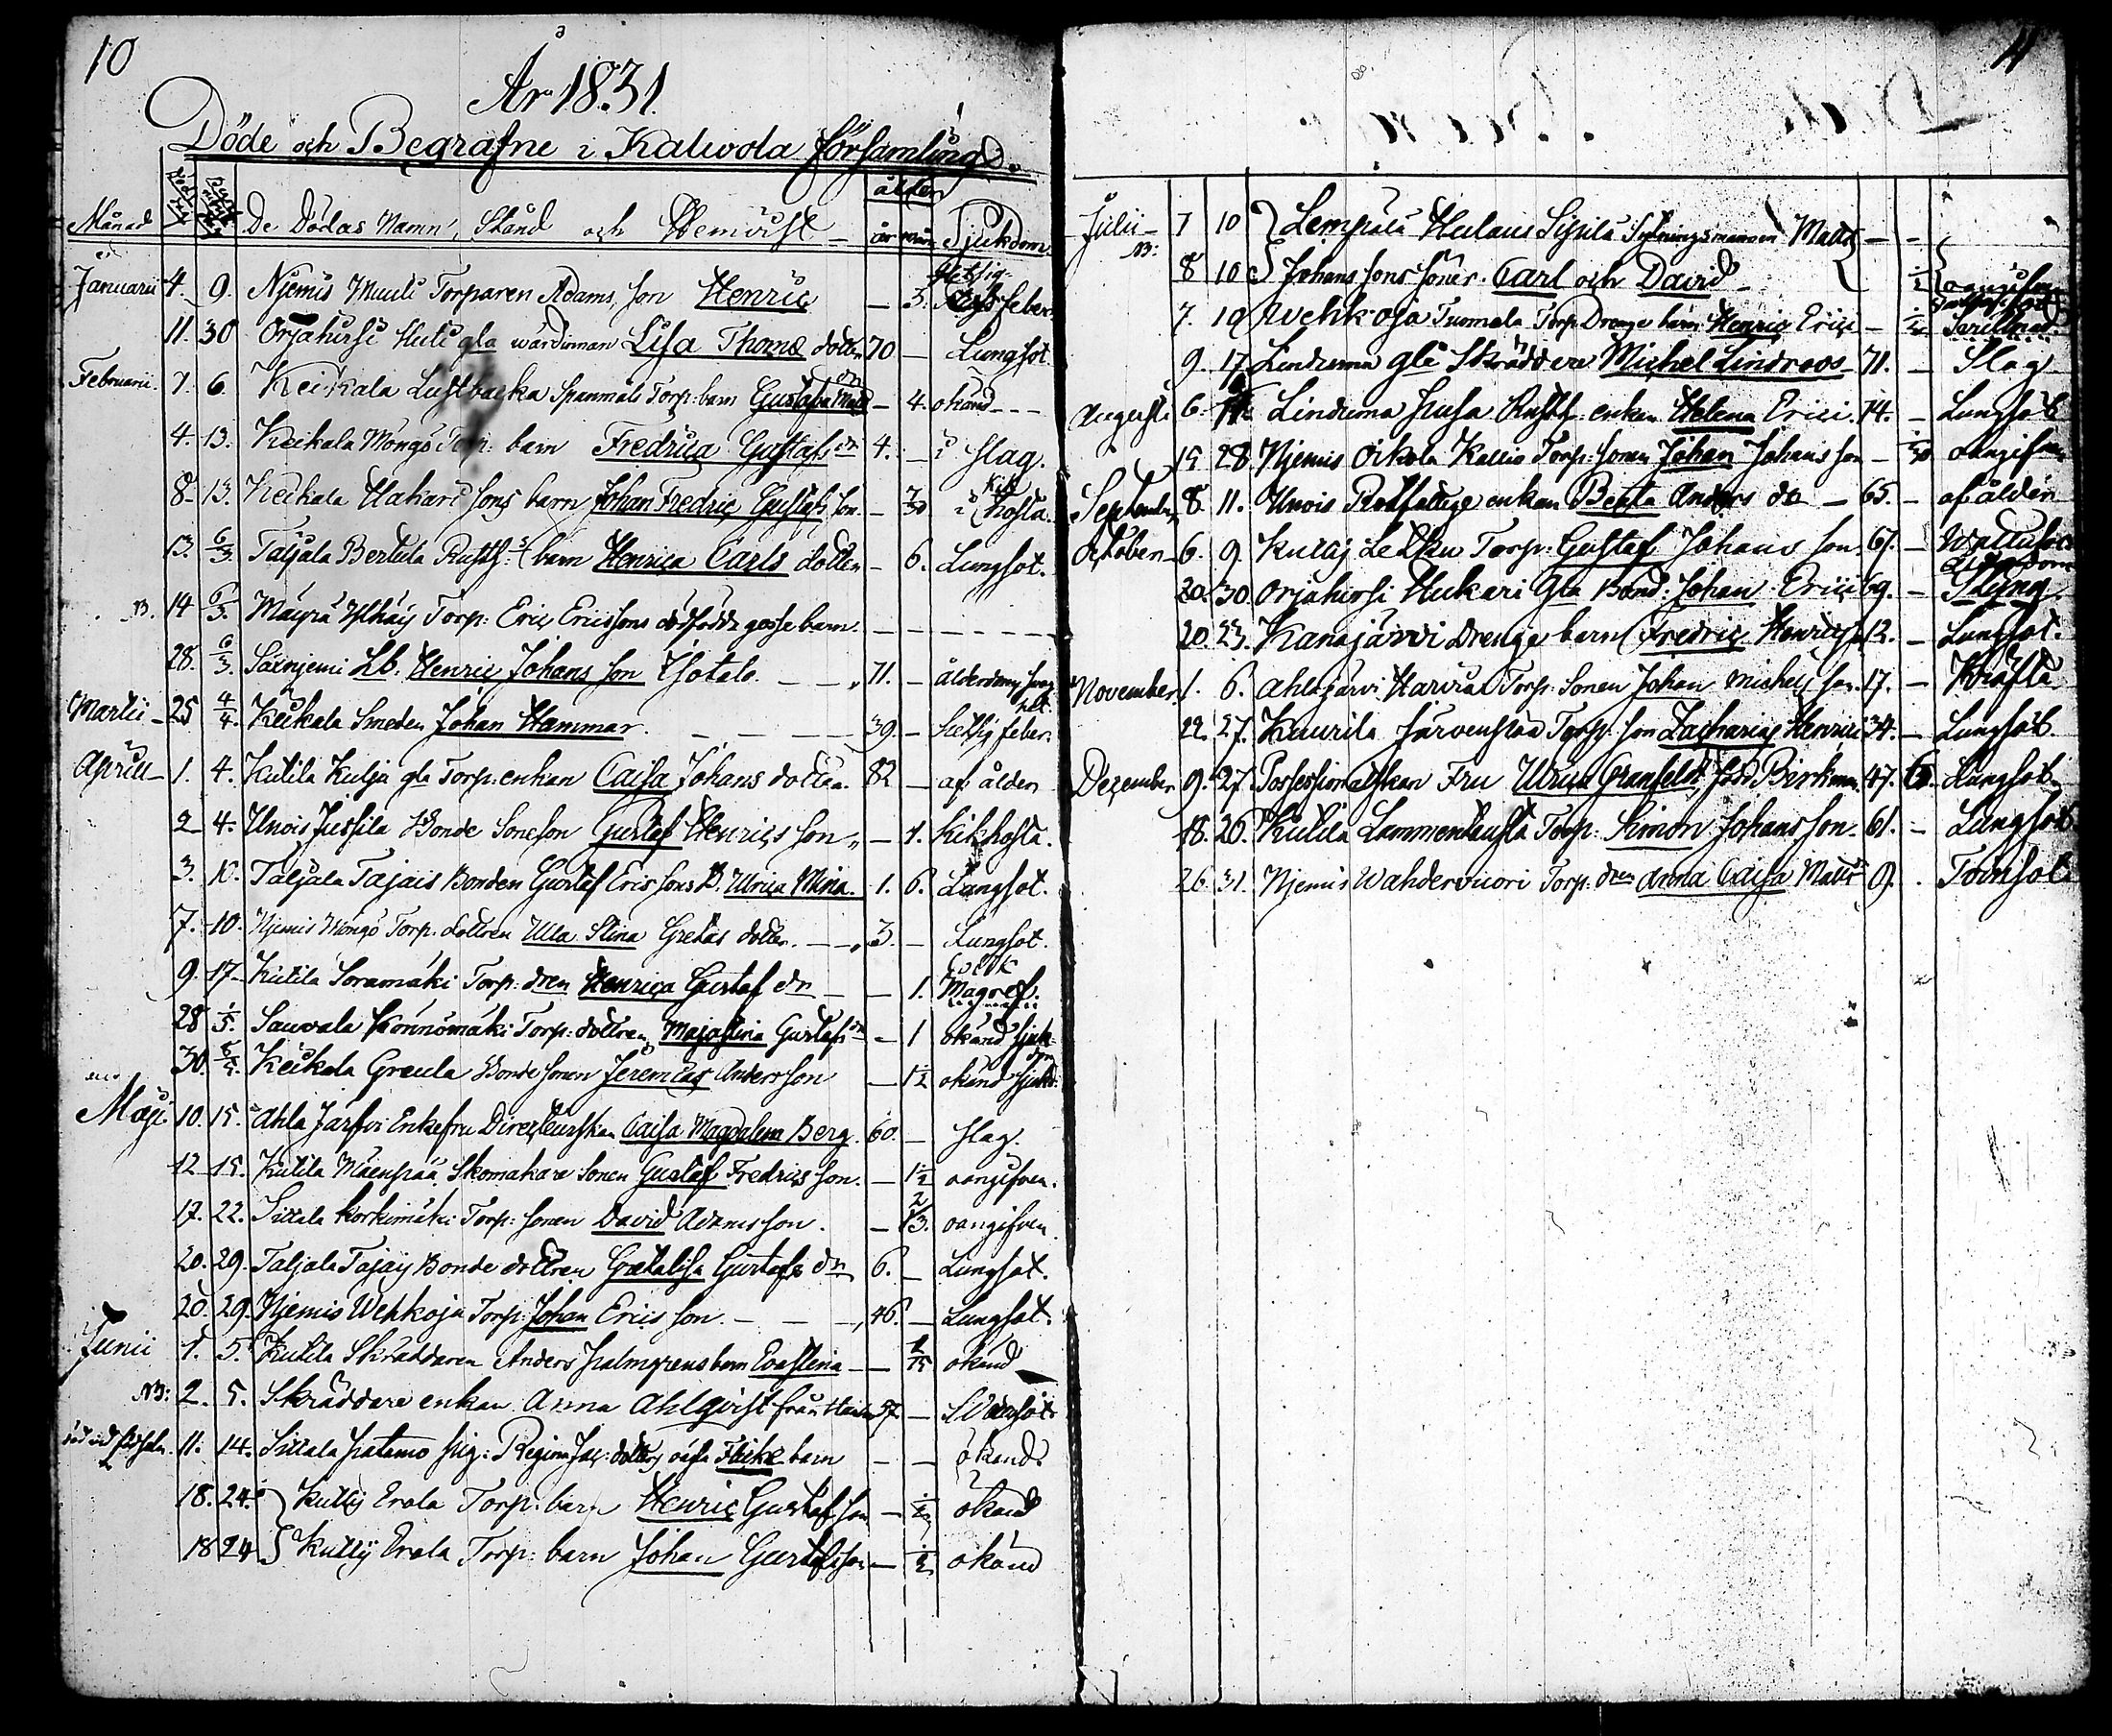 10
År 1831.
Döde och Begrafne i Kalwola församling.
Månad De Dödas Namn, Stånd och Hemvist ålder år mån Sjukdom
Januarii 4. 9. Njemis Muuli Torparen Adams son Henric — 3. Hetsig feber
11. 30 Orjahirsi Huli gla wärdinnan Lisa Thomæ dotter 70 — Lungsot.
Februarii. 1. 6. Keikala Lustbacka Spanmåls Torp: barn Gustafva — 4. okänd
4. 13. Keikala Mongö Torp: barn Fredrica Gustafs dr 4. — slag.
8. 13. Keikala Hakari sons barn Johan Fredric Gustafs son — Kikhosta.
13. 6/3. Taljala Bertula Rusth: barn Henrica Carls dotter — 6. Lungsot.
14 6/3. Mäyrä Torp: Eric Ericssons dödfödde gosse barn — —
28. 6/3. Saxnjemi Henric Johans son — 71. — ålderdoms
Martii 25 4/4. Keikala Smeden Johan Hammar. — 39. — hetsig feber.
Aprill 1. 4. Kutila Kulja gla Torp: enkan Caisa Johans dotter. 82 — af ålder
2 4. Unois Jussila Bonde Soneson Gustaf Henrics son — 1. Kikhosta.
3. 10. Taljala Tajais Bonden Gustaf Erics sons D. Ulrica Mina. 1. 6. Lungsot.
7. 10. Njemis Mongö Torp. dottren Ulla Stina Gretas dotter. — 3. — Lungsot.
9. 17. Kutila Soramäki Torp: dren Henrica Gustaf dr — 1. Colik Magref.
28 1/5. Sauvala Könnömäki Torp: dottren Maja Stina Gustafs dr — 1 okänd sjukdom
30. 8/5. Keikala Greula Bonde sonen Jeremias Andersson — 1½ okänd sjukd:
Maji. 10. 15. Ahla Järfvi Enkefru Directeurskan Caisa Magdalena Berg. 60. — slag.
12 15. Kutila Mäenpää Skomakare Sonen Gustaf Fredrics son. — 1½ oangifven.
17. 22. Sittala Korkimäki Torp: sonen David Adamsson. — 2/3. oangifven
20. 29. Taljala Tajais Bonde dottren Greta Lisa Gustafs dr 6. — Lungsot.
20. 29. Njemis Wehkoja Torp: Johan Erics son. — 46. — Lungsot.
Junii 1. 5. Kutila Skräddaren Anders Palmgrens barn Eva Stina — okänd
NB: 2. 5. Skräddare enkan Anna Ahlqvist från 57. —
11. 14. Sittala Patamo pig: Regina oäkta barn — — okänd.
18. 24. Kutty Erola Torp: barn Henric Gustaf son — ½ okänd
18 24 Kutty Erola Torp: barn Johan Gustafsson — ½ okänd
11
Julii 7 10 Lempälä Sipilä Matts
NB: 8 10 Johans sons söner Carl och David — ½ oangifven
7. 10 Wehkoja Tuomela Torp Drenge barn Henric Erici — ½
9. 17 Linduma gle Skräddare Michel Lindroos 71. — Slag
Augusti 6. Linduma Rusth: enkan Helena Erici 74. — Lungsot
19 28. Njemis Oikola Kallio Torp: sonen Johan Johans son — oangifven
September 8. 11. Unois Rotfattige enkan Beata Anders dr — 65. — af ålder
October 6. 9. Kutty: Lekku Torp: Gustaf Johans son 67. — Wattusot
20. 30. Orjahirsi Hukari gla Bond: Johan Erici 69. — Styng
20. 23. Kanajärvi Drenge barn Fredric Henrics 12. — Lungsot.
November 1. 6. Ahlajärvi Harviala Torp: Sonen Johan Michels son. 17. — Kräfta
22 27. Kaurila Järvenpää Torp: son Zacharias Henrici 34. — Lungsot
December 9. 27. Possessionatskan Fru Ulrica Granfeldt, född Birkman. 47. 6. Lungsot
18. 26. Kutila Lammentausta Torp: Simon Johans son. 61. — Lungsot
26. 31. Njemis Wahdervuori Torp: dren Anna Caisa Matts 9. Tvinsot